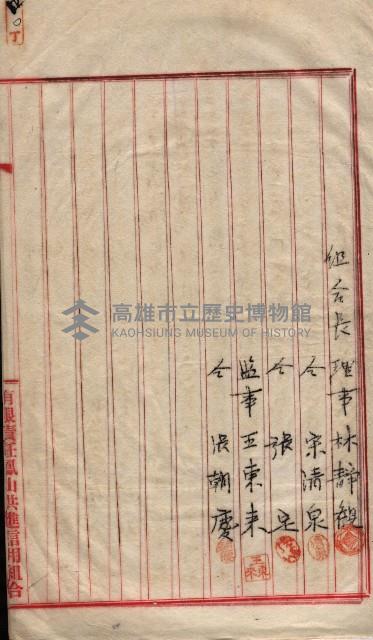 組合長理事林靜觀
仝 宋清泉
仝 張足
監事王東來
仝 張朝慶
王東來
有限責任鳳山共進信用組合
丁
高雄市立歷史博物館
KAOHSIUNG MUSEUM OF HISTORY